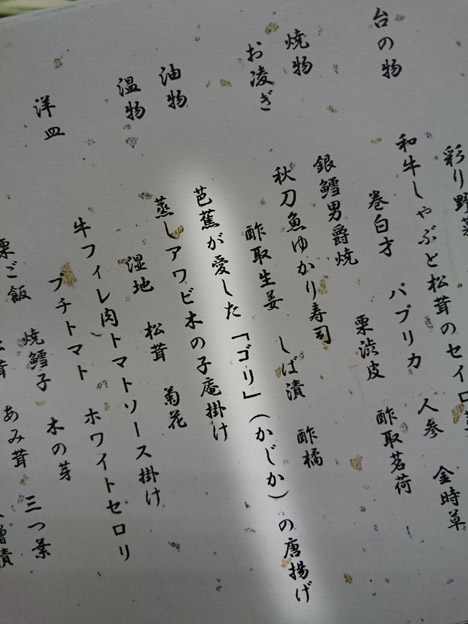 台の物
彩り野菜
和牛しゃぶと松茸のセイロ
巻白才 パプリカ 人参 金時草
焼物
銀鱈男爵焼
栗渋皮 酢取茗荷
お凌ぎ
秋刀魚ゆかり寿司
酢取生姜 しば漬 酢橘
油物
芭蕉が愛した「ゴリ」(かじか)の唐揚げ
温物
蒸しアワビ木の子庵掛け
湿地 松茸 菊花
洋皿
牛フィレ肉トマトソース掛け
プチトマト ホワイトセロリ
栗ご飯 焼鱈子 木の芽 三つ葉
あみ茸